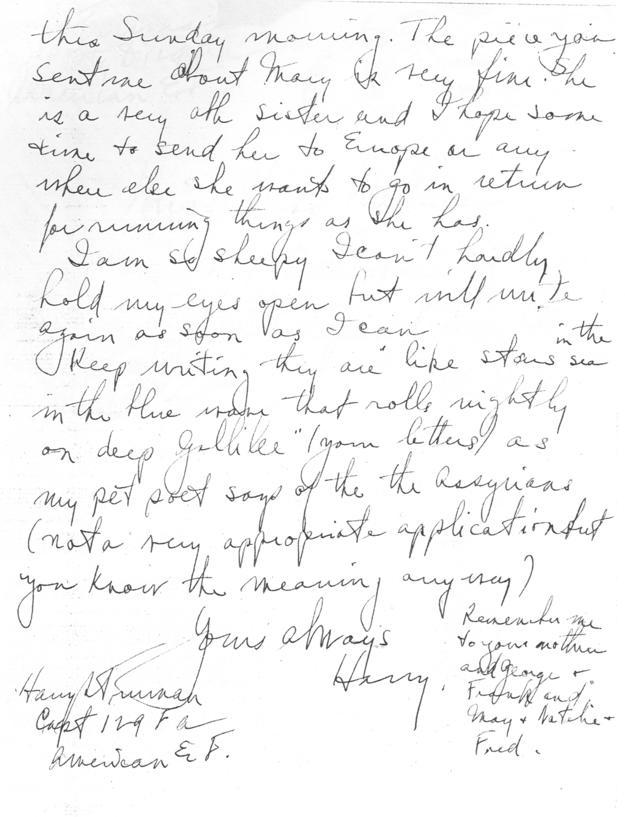 this Sunday morning. The piece you
sent me about Mary is very fine. She
is a very  sister and I hope some
time to send her to Europe or any
where else she wants to go in return
for running things as she has.
I am so sleepy I can't hardly
hold my eyes open but will write
again as soon as I can
Keep writing they are "like stars in the sea
in the blue wave that rolls nightly
on deep Gallilee" (your letters) as
my pet poet says of the the Assyrians
(not a very appropriate application but
you know the meaning anyway)
Yours always
Harry.
Harry S Truman
Capt 129 F a
American E F.
Remember me
to your mother
and George &
Frank and
May & Natalie &
Fred.